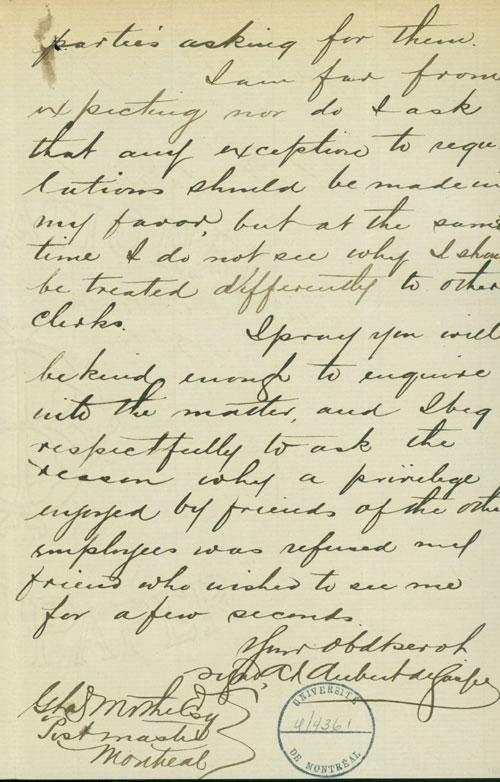 parties asking for them.
I am far from
expecting nor do I ask
that any exception to regu
lations should be made in
my favor, but at the same
time I do not see why I shou
be treated differently to other
clerks. I pray you will
be kind enough to enquire
into the matter, and I beg
respectfully to ask the
reason why a privilege
enjoyed by friends of the othe
employees was refused my
friend who wished to see me
for a few seconds.
Your Obdt servt
A Aubert de Gaspe
Esq
Post master
Montreal
UNIVERSITÉ
4/4361
DE MONTRÉAL